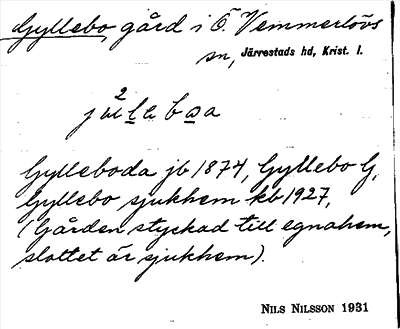 Gyllebo, gård i Ö. Vemmerlövs
sn, Järrestads hd, Krist. l.
Gylleboda jb 1874, Gyllebo G,
Gyllebo sjukhem kb 1927,
(Gården styckad till egnahem,
slottet är sjukhem).
NILS NILSSON 1931